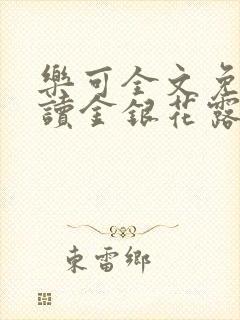 樂可全文免
讀金銀花露
東雷鄉